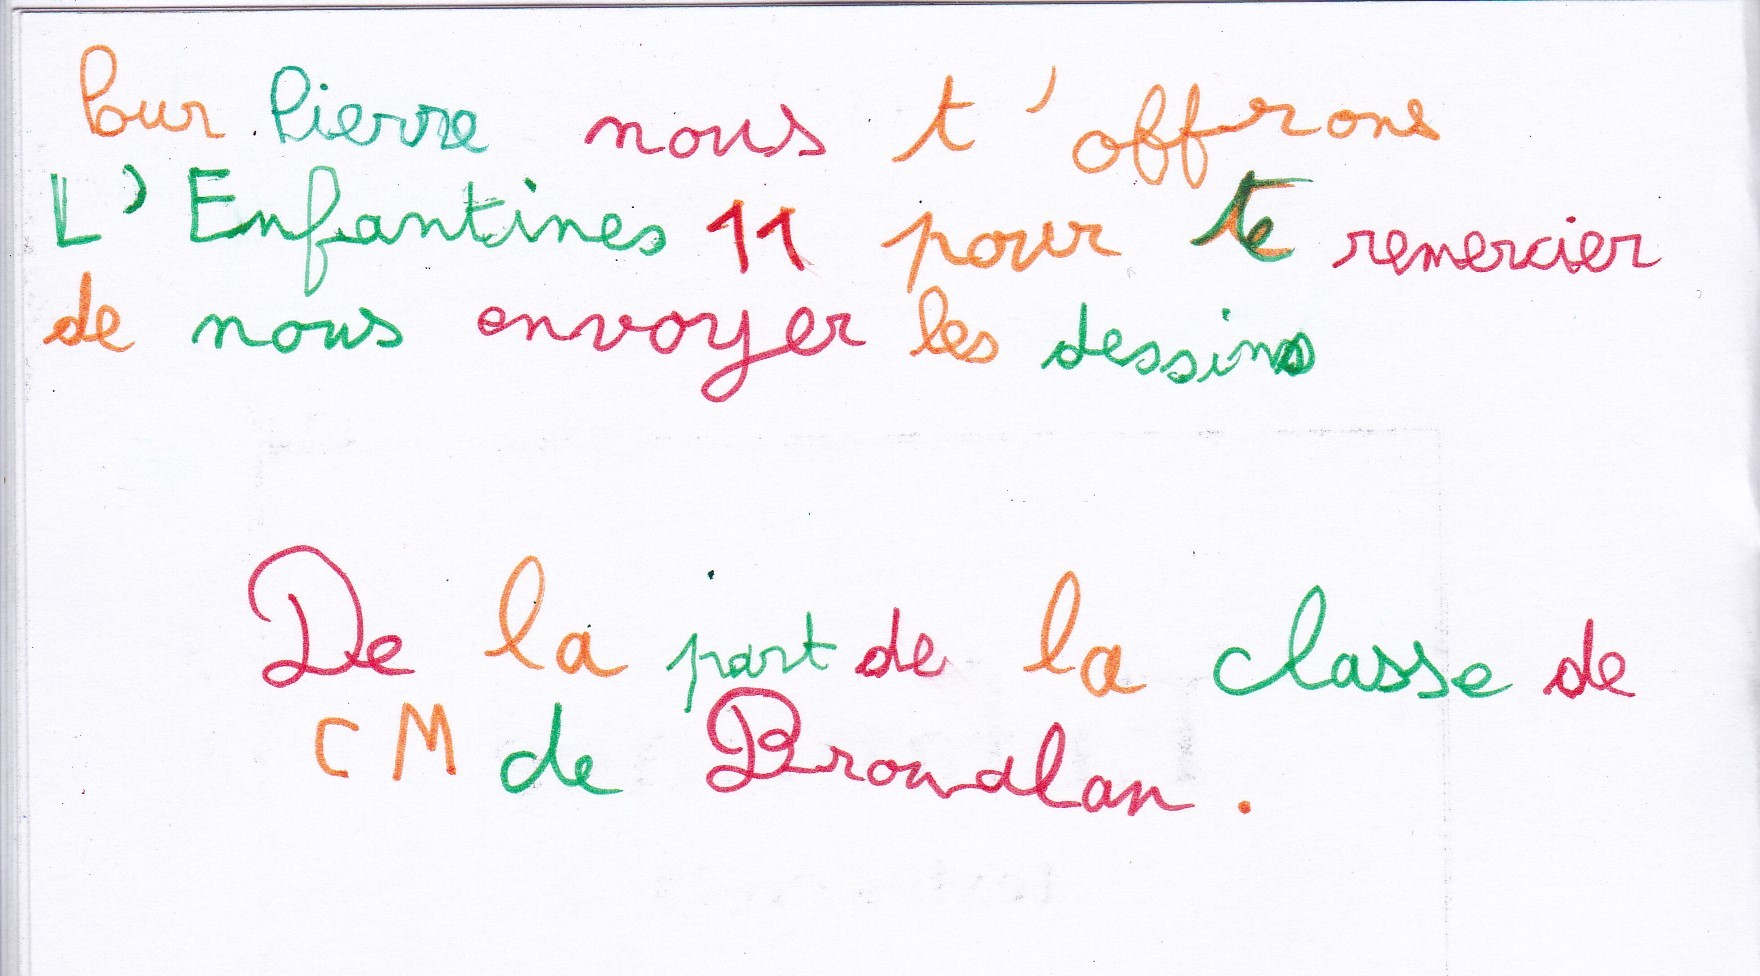 Pour Pierre nous t'offrons
L'Enfantines 11 pour te remercier
de nous envoyer les dessins
De la part de la classe de
CM de Broualan.